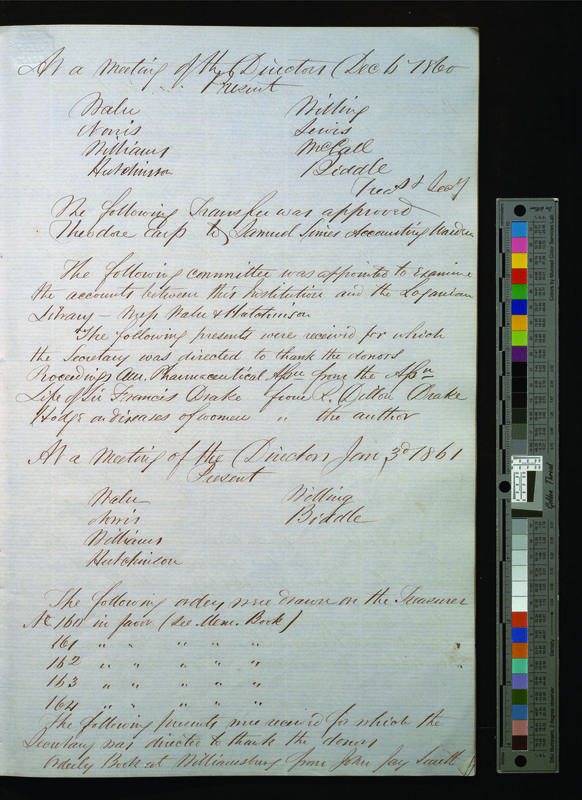 At a meeting of the Directors Dec 6 1860
Present
Waln Willing
Norris Lewis
Williams McCall
Hutchinson Biddle
Treas & Secy
The following Transfer was approved
Theodore Earp to Samuel Simes Accounting Warden
The following committee was appointed to examine
the accounts between this Institution and the Loganian
Library – Waln & Hutchinson
The following presents were received for which
the Secretary was directed to thank the donors
Proceedings Am. Pharmaceutical Assn from the Assn
Life of Sir Francis Drake from Dillon Drake
Hodge on diseases of women " the author
At a meeting of the Directors Jan 3d 1861
Present
Waln Willing
Norris Biddle
Williams
Hutchinson
The following orders were drawn on the Treasurer
No 160 in favor (see Mem. Book)
161 " " " " "
162 " " " " "
163 " " " " "
164 " " " " "
The following presents were received for which the
Secretary was directed to thank the donors
Orderly Book at Williamsburg from John Jay Smith
Golden Thread